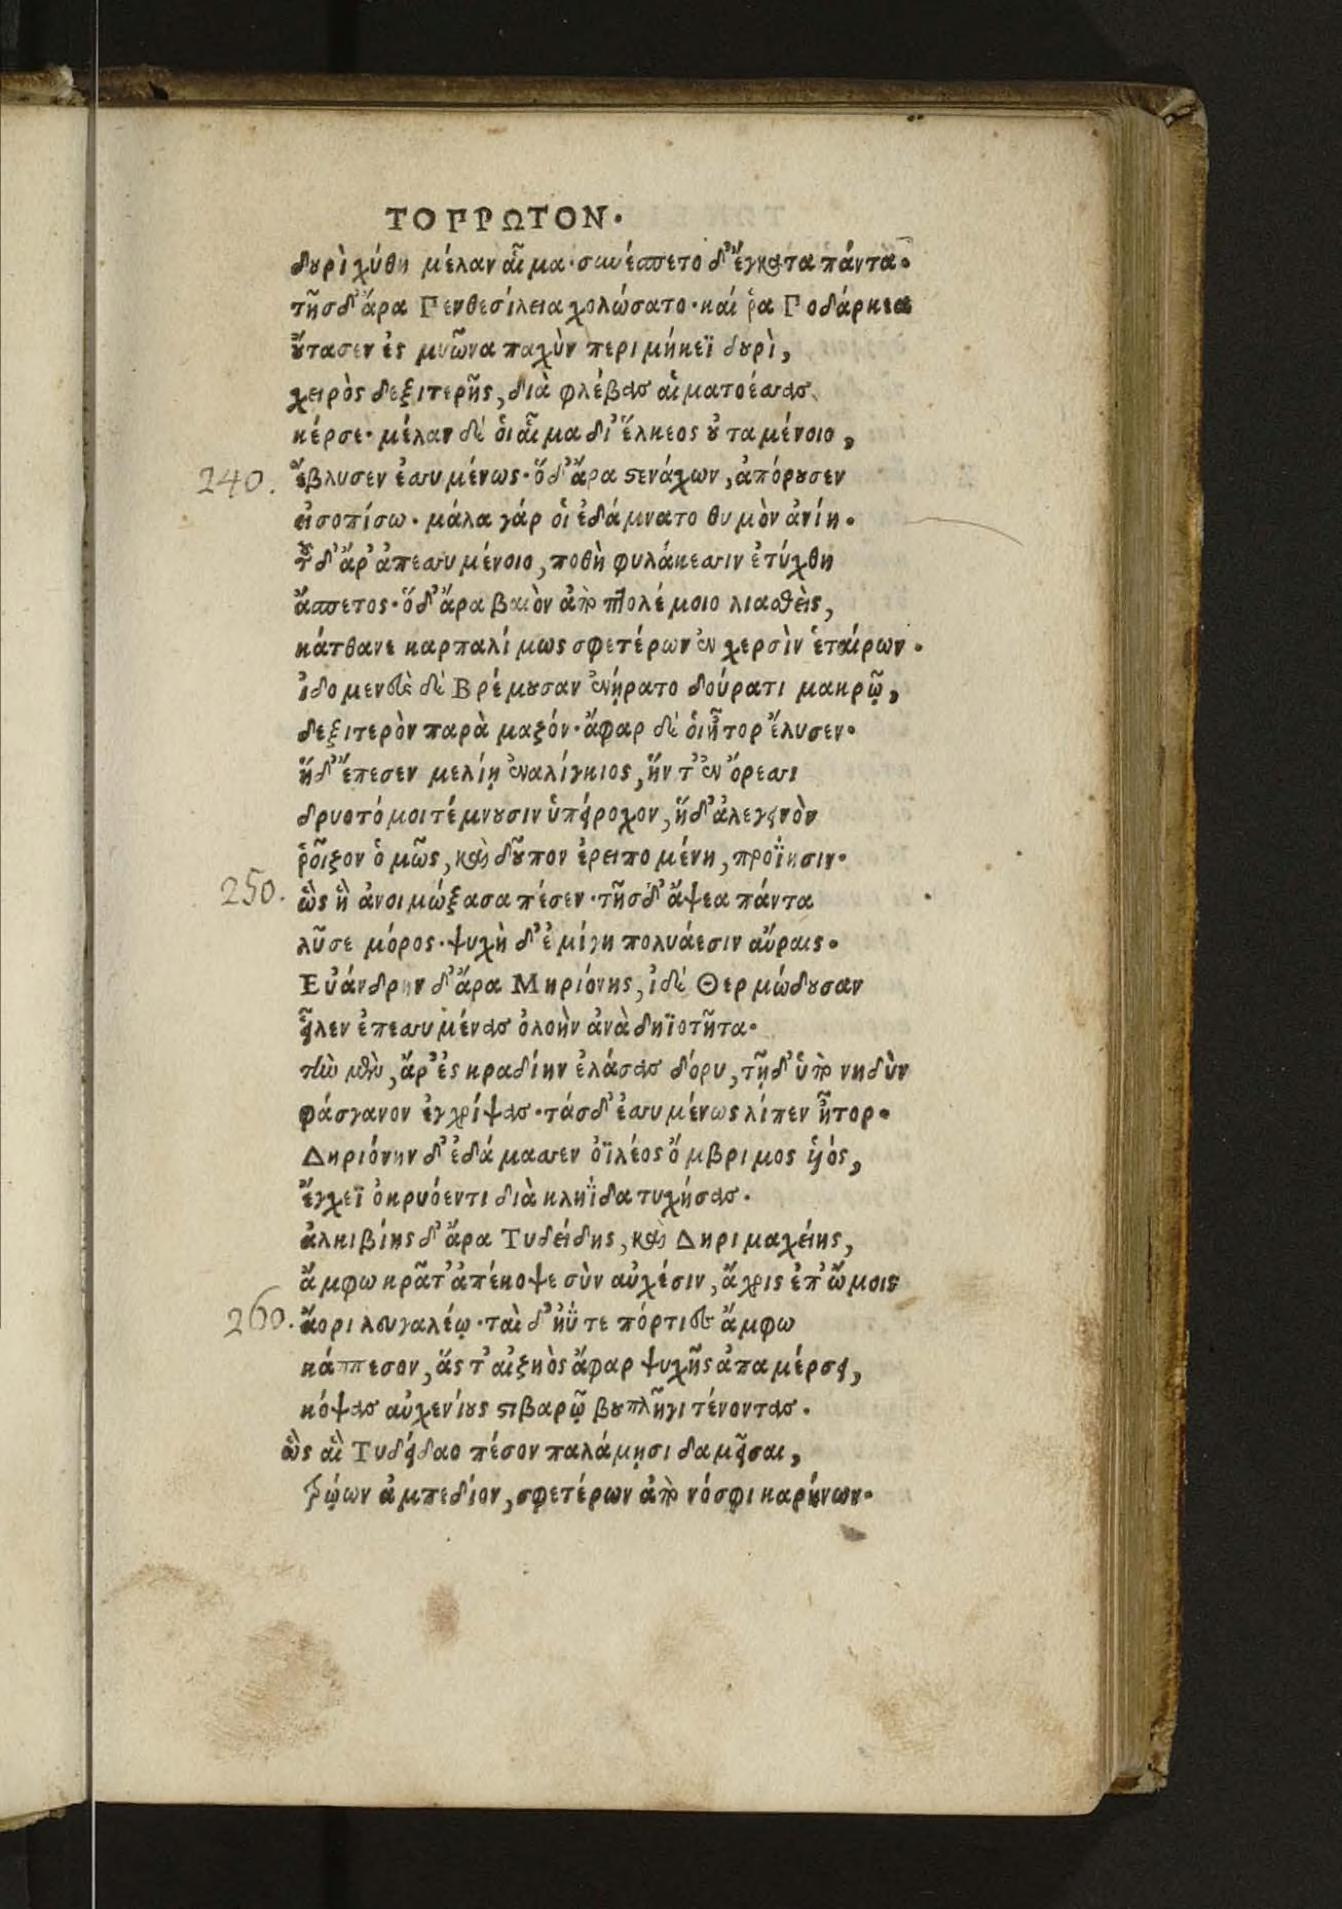 ΤΟ ΠΡΩΤΟΝ.
δουρὶ χύθη μέλαν αἷμα· συνέσπετο δ' ἔγκατα πάντα.
τῆς δ' ἄρα Πενθεσίλεια χολώσατο· καί ῥα Ποδάρκεα
οὔτασεν ἐς μυῶνα παχὺν περιμήκεϊ δουρὶ,
χειρὸς δεξιτερῆς, διὰ φλέβας αἱματοέσσας
κέρσε· μέλαν δέ οἱ αἷμα δι' ἕλκεος οὐταμένοιο,
240. ἔβλυσεν ἐσσυμένως· ὅδ' ἄρα στενάχων, ἀπόρουσεν
εἰσοπίσω· μάλα γάρ οἱ ἐδάμνατο θυμὸν ἀνίη.
τοῦ δ' ἄρ' ἀπεσσυμένοιο, ποθὴ φυλάκεσσιν ἐτύχθη
ἄσπετος· ὅδ' ἄρα βαιὸν ἀπὸ πτολέμοιο λιασθεὶς,
κάτθανε καρπαλίμως σφετέρων ἐν χερσὶν ἑταίρων.
ἰδομενεὺς δὲ Βρέμουσαν ἐνήρατο δούρατι μακρῷ,
δεξιτερὸν παρὰ μαζόν· ἄφαρ δέ οἱ ἦτορ ἔλυσεν.
ἥδ' ἔπεσεν μελίῃ ἐναλίγκιος, ἥν τ' ἐν ὄρεσσι
δρυοτόμοι τέμνουσιν ὑπείροχον, ἥδ' ἀλεγεινὸν
ῥοῖζον ὁμῶς, καὶ δοῦπον ἐρειπομένη, προΐησιν.
250. ὣς ἣ ἀνοιμώξασα πέσεν· τῆς δ' ἅψεα πάντα
λῦσε μόρος· ψυχὴ δ' ἐμίγη πολυάεσιν αὔραις.
Εὐάνδρην δ' ἄρα Μηριόνης, ἰδέ Θερμώδουσαν
εἷλεν ἐπεσσυμένας ὀλοὴν ἀνὰ δηϊοτῆτα.
τὴν μὲν, ἄρ' ἐς κραδίην ἐλάσας δόρυ, τῇ δ' ὑπὸ νηδὺν
φάσγανον ἐγχρίψας· τάς δ' ἐσσυμένως λίπεν ἦτορ.
Δηριόνην δ' ἐδάμασσεν ὀϊλέος ὄμβριμος υἱός,
ἔγχεϊ ὀκρυόεντι διὰ κληΐδα τυχήσας.
ἀλκιβίης δ' ἄρα Τυδείδης, καὶ Δηριμαχείης,
ἄμφω κρᾶτ' ἀπέκοψε σὺν αὐχέσιν, ἄχρις ἐπ' ὤμοις
260. ἄορι λευγαλέῳ· ταὶ δ' ἠΰτε πόρτιες ἄμφω
κάππεσον, ἅς τ' αἰζηὸς ἄφαρ ψυχῆς ἀπαμέρσει,
κόψας αὐχενίους στιβαρῷ βουπλῆγι τένοντας.
ὣς αἳ Τυδείδαο πέσον παλάμῃσι δαμεῖσαι,
Τρώων ἀμπεδίον, σφετέρων ἀπὸ νόσφι καρήνων.